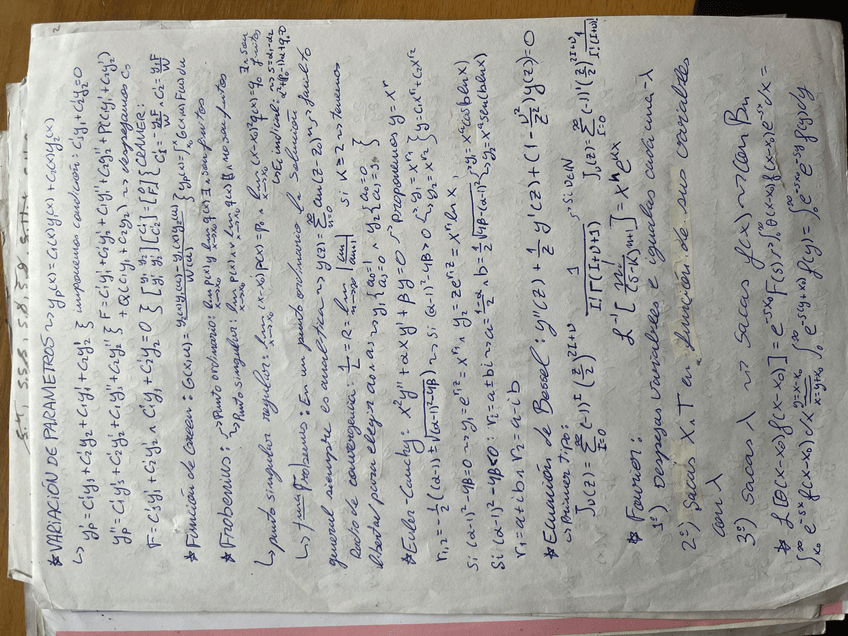 2
★ VARIACIÓN DE PARÁMETROS ⤳ yp(x) = C1(x)y1(x) + C2(x)y2(x)
↳ y'p = C1'y1 + C2'y2 + C1y1' + C2y2' } imponemos condición: C1'y1 + C2'y2 = 0
y''p = C1'y1' + C2'y2' + C1y1'' + C2y2'' } F = C1'y1' + C2'y2' + C1y1'' + C2y2'' + P(C1y1' + C2y2')
+ Q(C1y1 + C2y2) ⤳ despejamos Cs
F = C1'y1' + C2'y2' ∧ C1'y1 + C2'y2 = 0 } [y1 y2; y1' y2'] [C1'; C2'] = [0; F] } CRAMER: C1' = -y2F/W ∧ C2' = y1F/W
★ Función de Green: G(x,u) = } yp(x) = ∫ G(x,u) F(u) du
★ Frobenius: ↳ Punto ordinario: lim x→x0 p(x) y lim x→x0 q(x) ∃ y son finitos
↳ Punto singular: lim x→x0 p(x) ∧∨ lim x→x0 q(x) ∄, no son finitos
↳ punto singular regular: lim x→x0 (x-x0)p(x) = p0 ∧ lim x→x0 (x-x0)²q(x) = q0 ∃ y son finitos
↳ Ec. indicial:
↳ Frobenius: En un punto ordinario la solución
general siempre es analítica ⤳ y(z) = ∑ n=0 ∞ an(z-z0)ⁿ
Radio de convergencia: 1/L = R = lim n→∞ |an/an+1| si K=2 ⤳ tenemos
libertad para elegir a0 ∧ a1 ⤳ y1 { a0=1 a1=0 ∧ y2 { a0=0 a1=1 }
★ Euler-Cauchy: x²y'' + αxy' + βy = 0 ⤳ proponemos y = xʳ
r1,2 = -1/2((α-1) ± √((α-1)²-4β)) ⤳ Si (α-1)²-4β > 0 ⤳ y1 = x^r1, y2 = x^r2 } y = C1x^r1 + C2x^r2
Si (α-1)²-4β = 0 ⤳ y1 = e^rz = x^r1 ∧ y2 = ze^r1z = x^r1 ln x,
Si (α-1)²-4β < 0: r1 = a ± bi ⤳ a = (1-α)/2 ∧ b = 1/2 √(4β-(α-1)²) ⤳ y1 = xᵃ cos(b ln x)
r1 = a+ib ∧ r2 = a-ib ⤳ y2 = xᵃ sen(b ln x)
★ Ecuación de Bessel: y''(z) + 1/z y'(z) + (1 - ν²/z²) y(z) = 0
↳ Primer tipo: ⤳ Si ν∈N
Jν(z) = ∑ I=0 ∞ (-1)^I (z/2)^(2I+ν) 1/(I! Γ(I+ν+1)) Jν(z) = ∑ I=0 ∞ (-1)^I (z/2)^(2I+ν) 1/(I!(I+ν)!)
★ Fourier: ℒ⁻¹[n!/(s-k)^(n+1)] = xⁿe^kx
1º) Despejas variables e igualas cada una -λ
2º) Sacas X ∧ T en función de sus variables
con λ
3º) Sacas λ ⤳ Sacas f(x) ⤳ Con Bn
★ ℒ[θ(x-x0)f(x-x0)] = e^-sx0 F(s) ⤳ ∫ 0 ∞ θ(x-x0)f(x-x0)e^-sx dx =
∫ x0 ∞ e^-sx f(x-x0) dx y=x-x0 x=y+x0 ∫ 0 ∞ e^-s(y+x0) f(y) = ∫ 0 ∞ e^-sx0 e^-sy f(y) dy